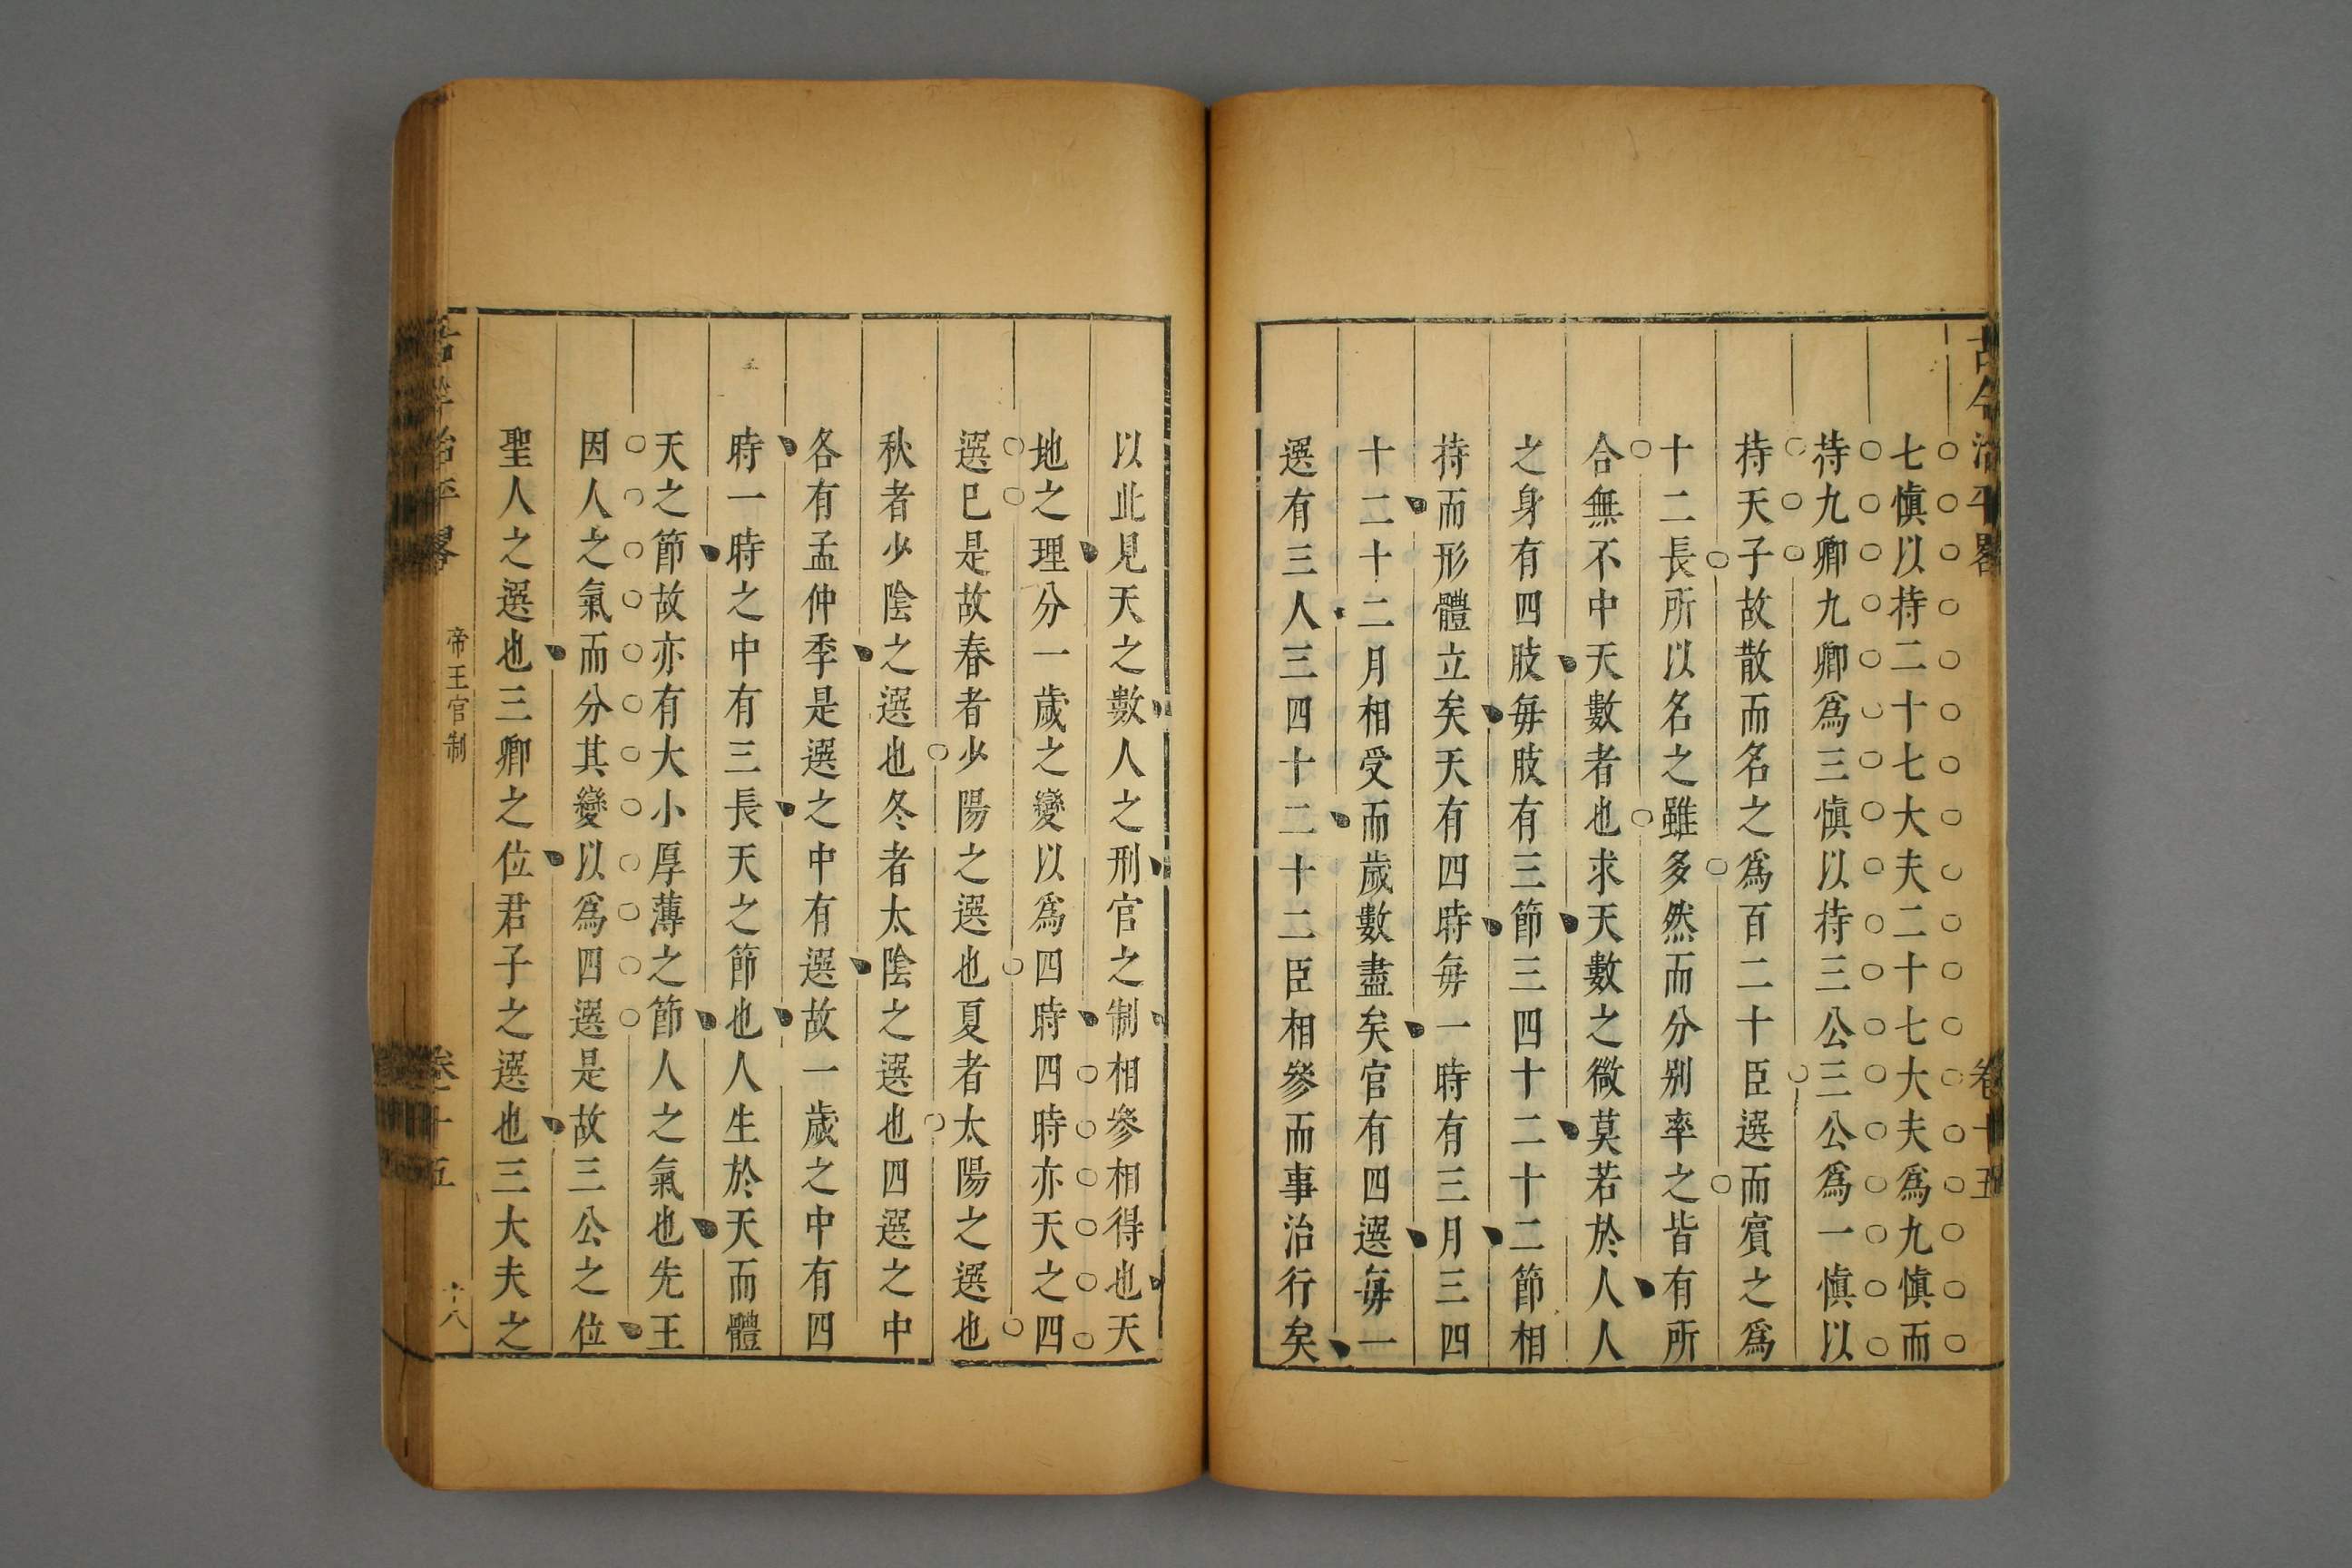 古今治平畧 卷十五
七慎以持二十七大夫二十七大夫為九慎而
待九卿九卿為三慎以持三公三公為一慎以
持天子故散而名之為百二十臣選而賓之為
十二長所以名之雖多然而分别率之皆有所
合無不中天數者也求天數之微莫若於人人
之身有四肢每肢有三節三四十二十二節相
持而形體立矣天有四時每一時有三月三四
十二十二月相受而歲數盡矣官有四選每一
選有三人三四十二十二臣相參而事治行矣
以此見天之數人之刑官之制相參相得也天
地之理分一歲之變以為四時四時亦天之四
選已是故春者少陽之選也夏者太陽之選也
秋者少陰之選也冬者太陰之選也四選之中
各有孟仲季是選之中有選故一歲之中有四
時一時之中有三長天之節也人生於天而體
天之節故亦有大小厚薄之節人之氣也先王
因人之氣而分其變以為四選是故三公之位
聖人之選也三卿之位君子之選也三大夫之
治平畧 帝王官制 卷十五 十八